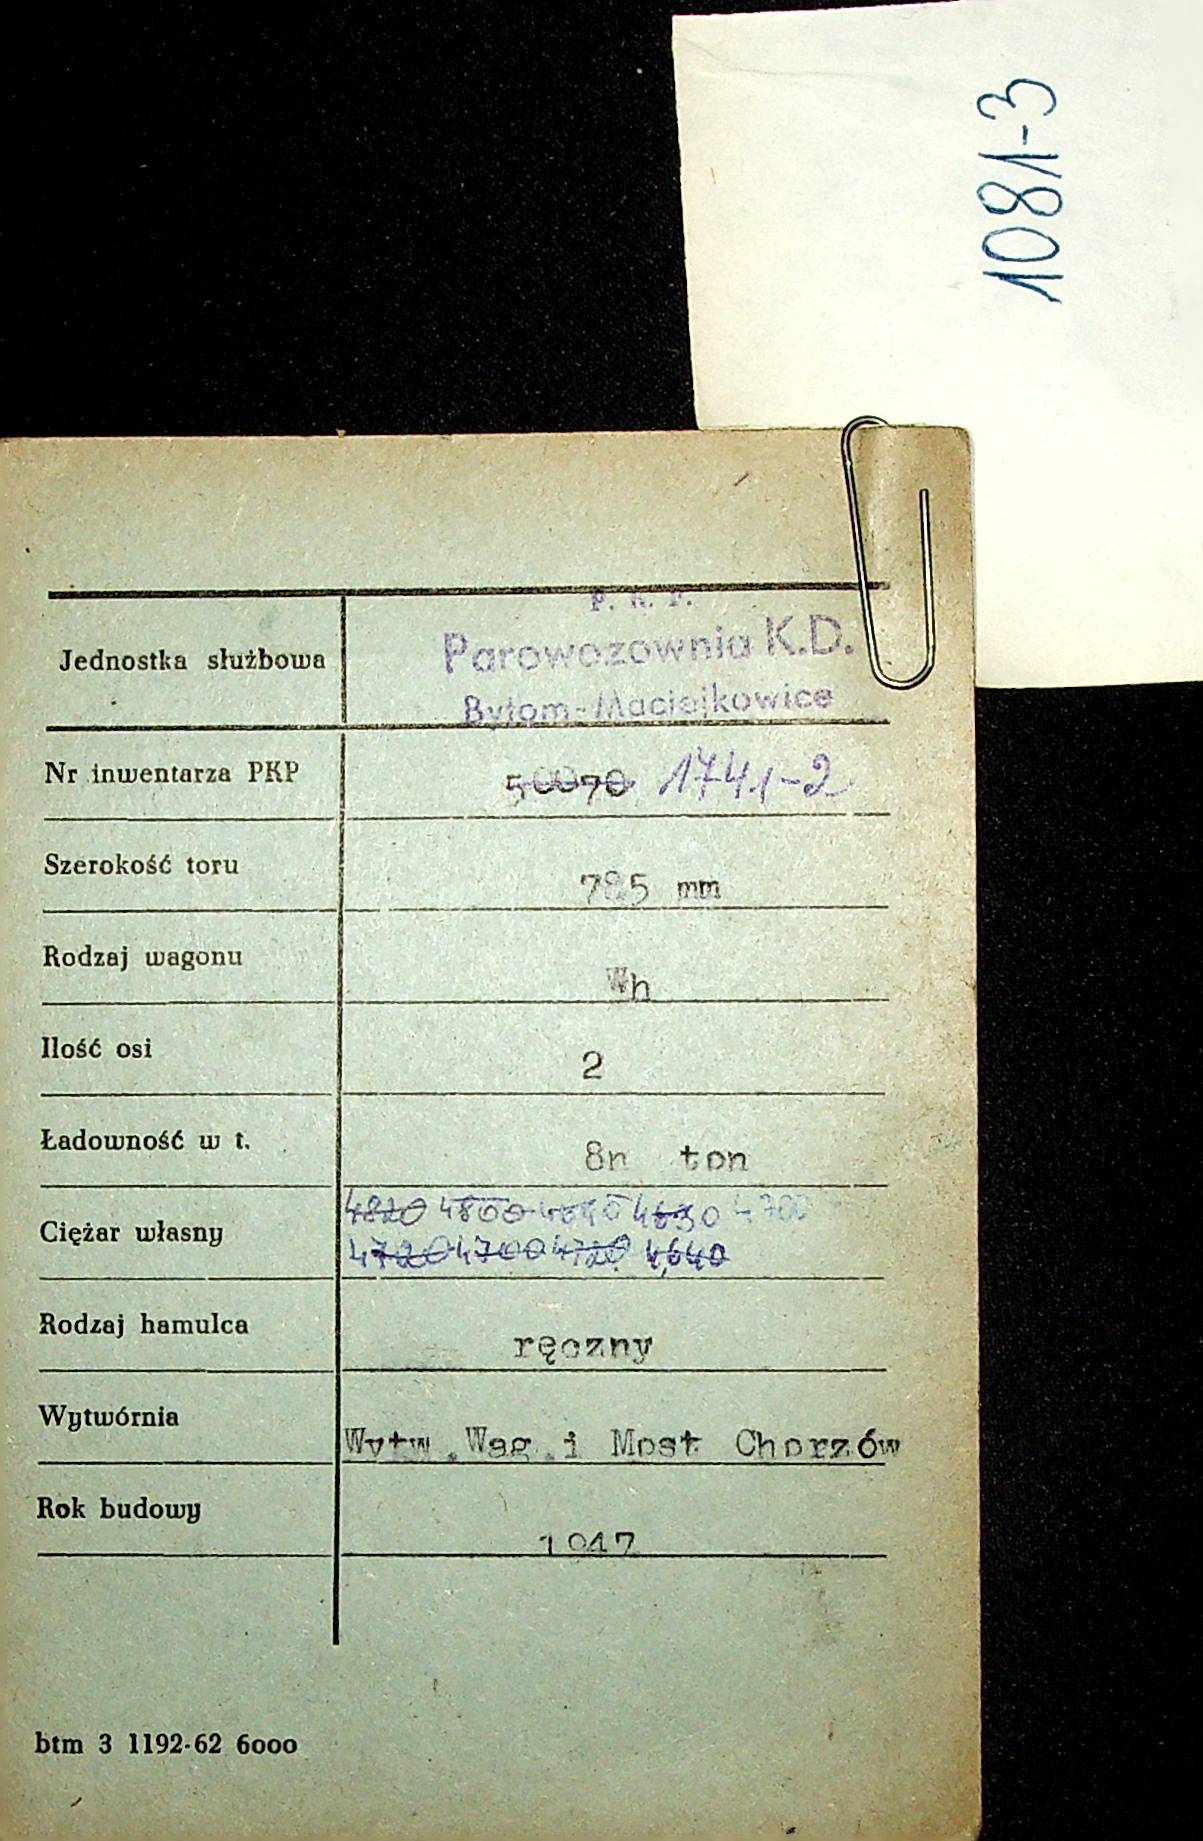 1081-3
P. K. P.
Jednostka służbowa Parowozownia K.D.
Bytom-Maciejkowice
Nr inwentarza PKP 50070 1741-2
Szerokość toru 785 mm
Rodzaj wagonu Wh
Ilość osi 2
Ładowność w t. 8n ton
Ciężar własny 4820 4800 4640 4630 4700
4720 4700 4720 4,640
Rodzaj hamulca ręczny
Wytwórnia Wytw.Wag.i Most Chorzów
Rok budowy 1947
btm 3 1192-62 6000